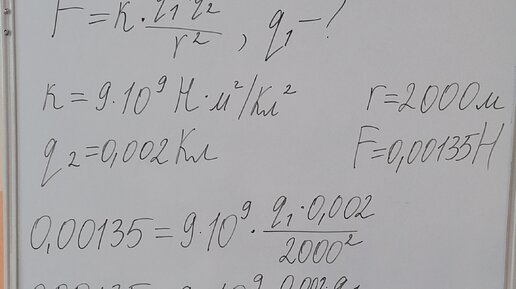 F = k · q₁ q₂ / r² , q₁ – ?
k = 9·10⁹ Н·м²/Кл² r = 2000м
q₂ = 0,002 Кл F = 0,00135 Н
0,00135 = 9·10⁹ · q₁·0,002 / 2000²